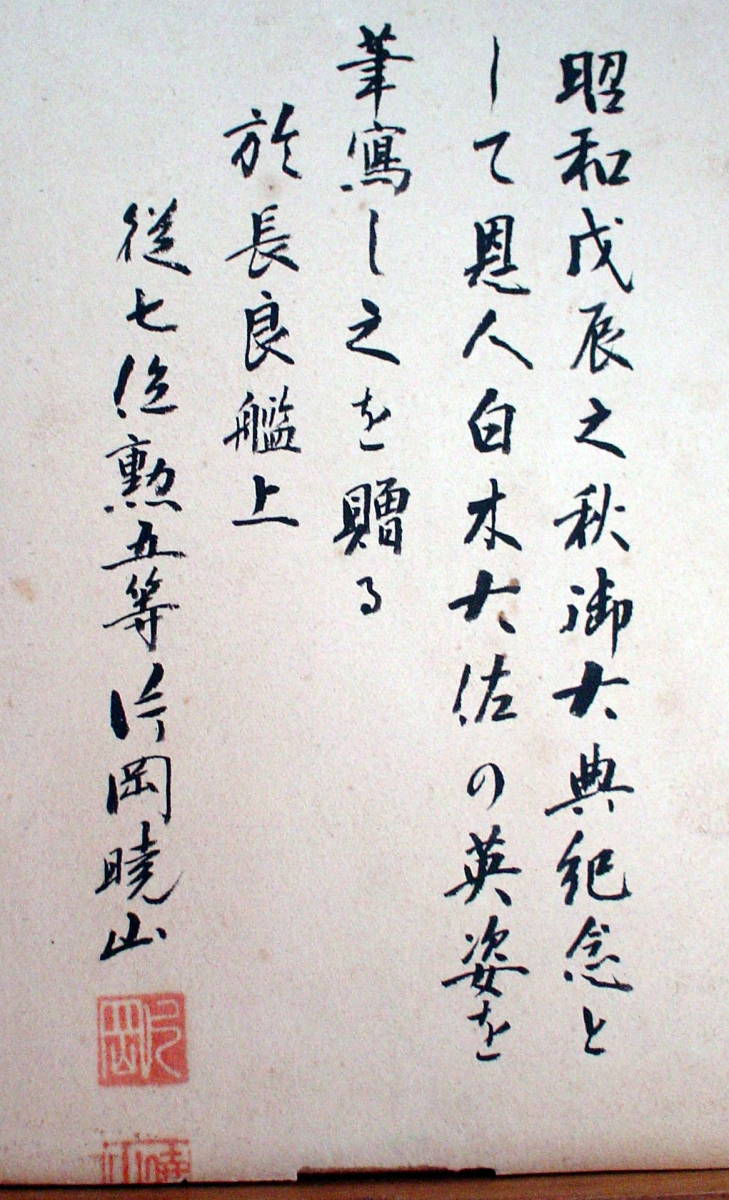 昭和戊辰之秋御大典紀念と
して恩人白木大佐の英姿を
筆寫し之を贈る
於長良艦上
従七位勲五等片岡曉山
片岡